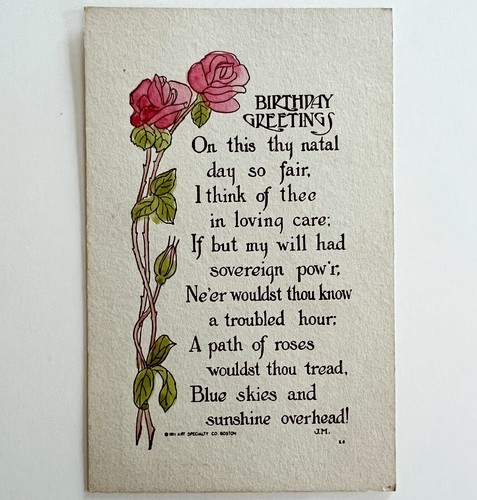 BIRTHDAY
GREETINGS
On this thy natal
day so fair,
I think of thee
in loving care;
If but my will had
sovereign pow'r,
Ne'er wouldst thou know
a troubled hour;
A path of roses
wouldst thou tread,
Blue skies and
sunshine overhead!
© 1911 ART SPECIALTY CO. BOSTON
J.M.